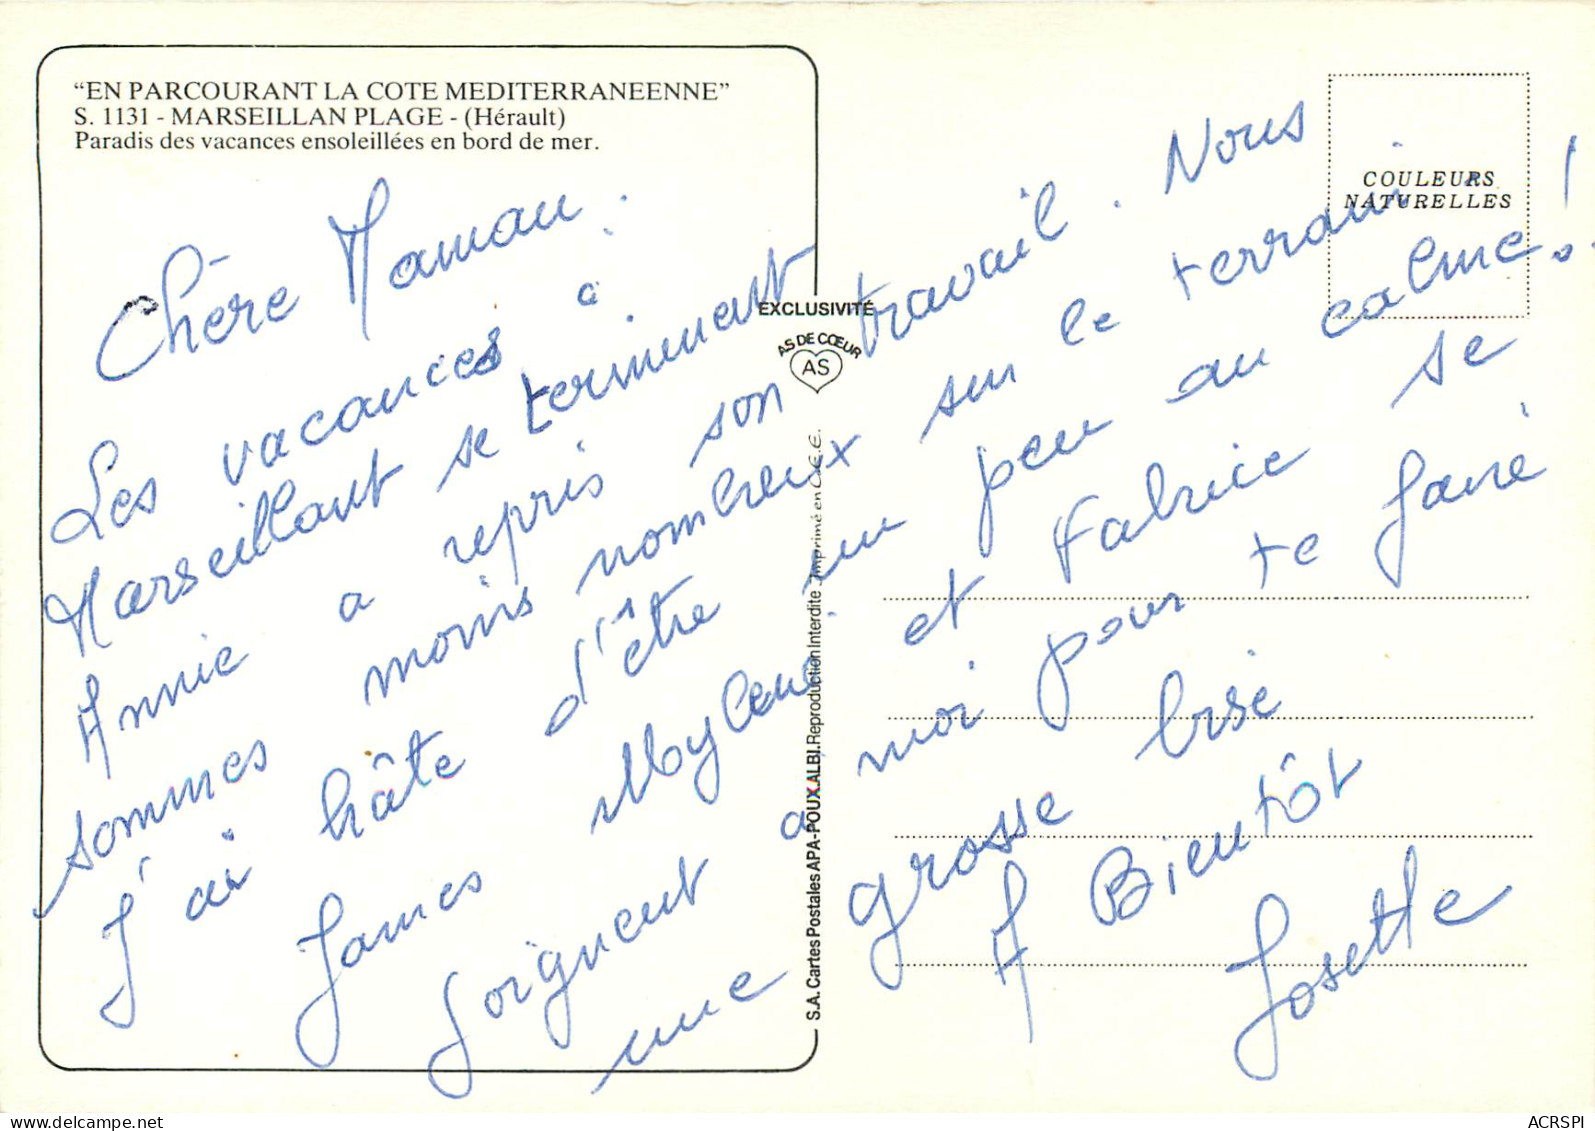 "EN PARCOURANT LA COTE MEDITERRANEENNE"
S. 1131 - MARSEILLAN PLAGE - (Hérault)
Paradis des vacances ensoleillées en bord de mer.
Chère Maman.
Les vacances à
Marseillant se terminent
Annie a repris son travail. Nous
sommes moins nombreux sur le terrain.
J'ai hâte d'être un peu au calme..!
James Mylene et Fabrice se
joignent a moi pour te faire
une grosse bise
A Bientôt
Josette
EXCLUSIVITÉ
AS DE CŒUR
AS
S.A. Cartes Postales APA-POUX.ALBI. Reproduction Interdite - Imprimé en C.E.E.
COULEURS
NATURELLES
www.delcampe.net
ACRSPI